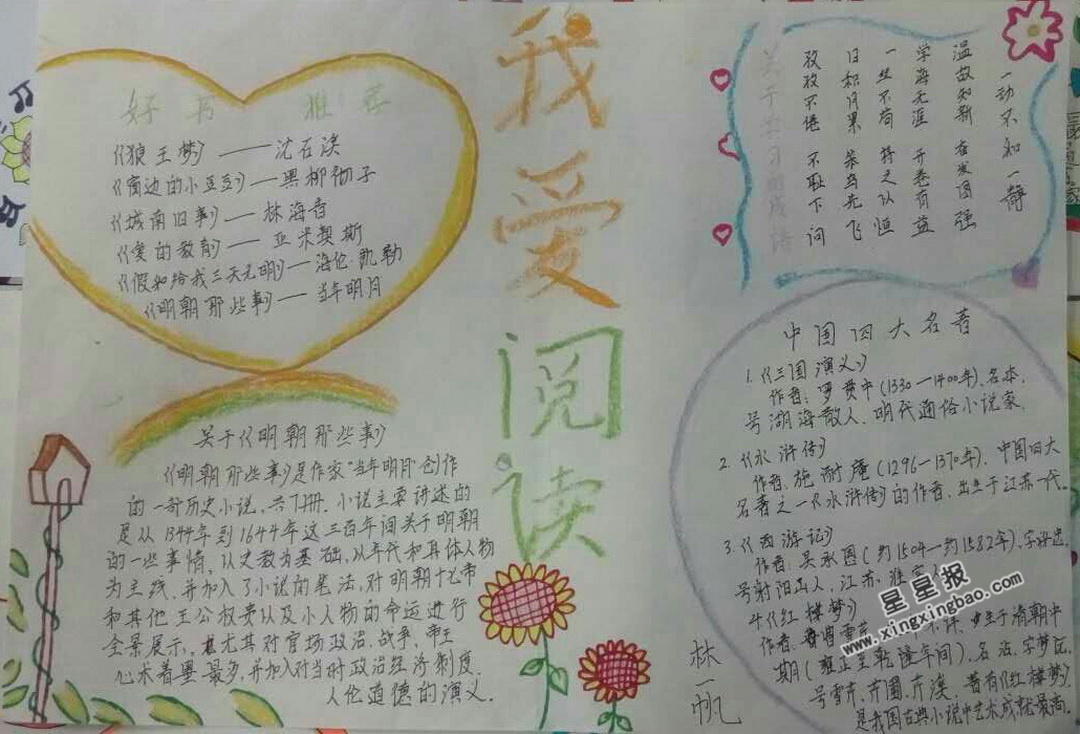 好书推荐
《狼王梦》——沈石溪
《窗边的小豆豆》——黑柳彻子
《城南旧事》——林海音
《爱的教育》——亚米契斯
《假如给我三天光明》——海伦·凯勒
《明朝那些事》——当年明月
关于《明朝那些事》
《明朝那些事》是作家“当年明月”创作
的一部历史小说，共7册。小说主要讲述的
是从1344年到1644年这三百年间关于明朝
的一些事情，以史料为基础，以年代和具体人物
为主线，并加入了小说的笔法，对明朝十七帝
和其他王公权贵以及小人物的命运进行
全景展示，尤其对官场政治、战争、帝王
心术着墨最多，并加入对当时政治经济制度、
人伦道德的演义。
我爱阅读
关于学习的成语
一动不如一静
温故知新 奋发图强
学海无涯 开卷有益
一丝不苟 持之以恒
日积月累 笨鸟先飞
孜孜不倦 不耻下问
中国四大名著
1.《三国演义》
作者：罗贯中(1330—1400年)，名本，
号湖海散人，明代通俗小说家。
2.《水浒传》
作者：施耐庵(1296—1370年)，中国四大
名著之一《水浒传》的作者，出生于江苏
3.《西游记》
作者：吴承恩(约1504—约1582年)，字汝忠，
号射阳山人，江苏
4.《红楼梦》
作者：曹雪芹 生于清朝中
期(雍正至乾隆年间)，名沾，字梦阮，
号雪芹、芹圃、芹溪，著有《红楼梦》
是我国古典小说中艺术成就最高。
林一帆
星星报
www.xingxingbao.com